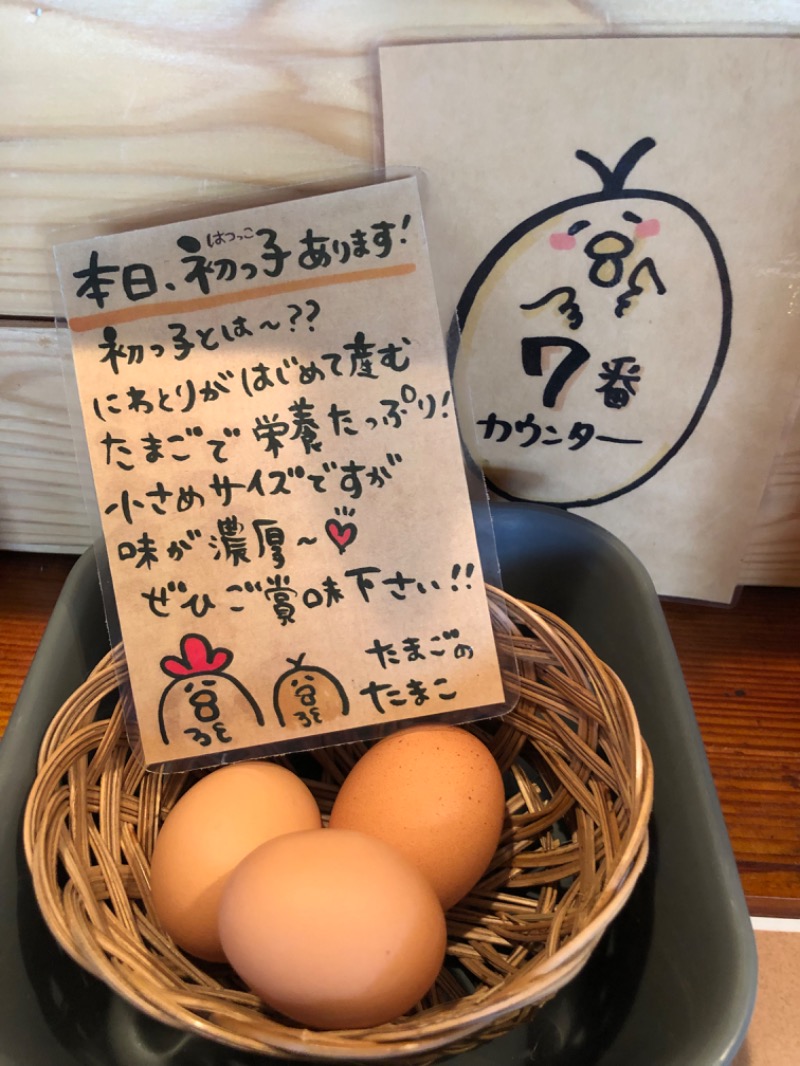 はつっこ
本日、初っ子あります!
初っ子とは〜??
にわとりがはじめて産む
たまごで栄養たっぷり!
小さめサイズですが
味が濃厚〜
ぜひご賞味下さい!!
たまごの
たまこ
7番
カウンター